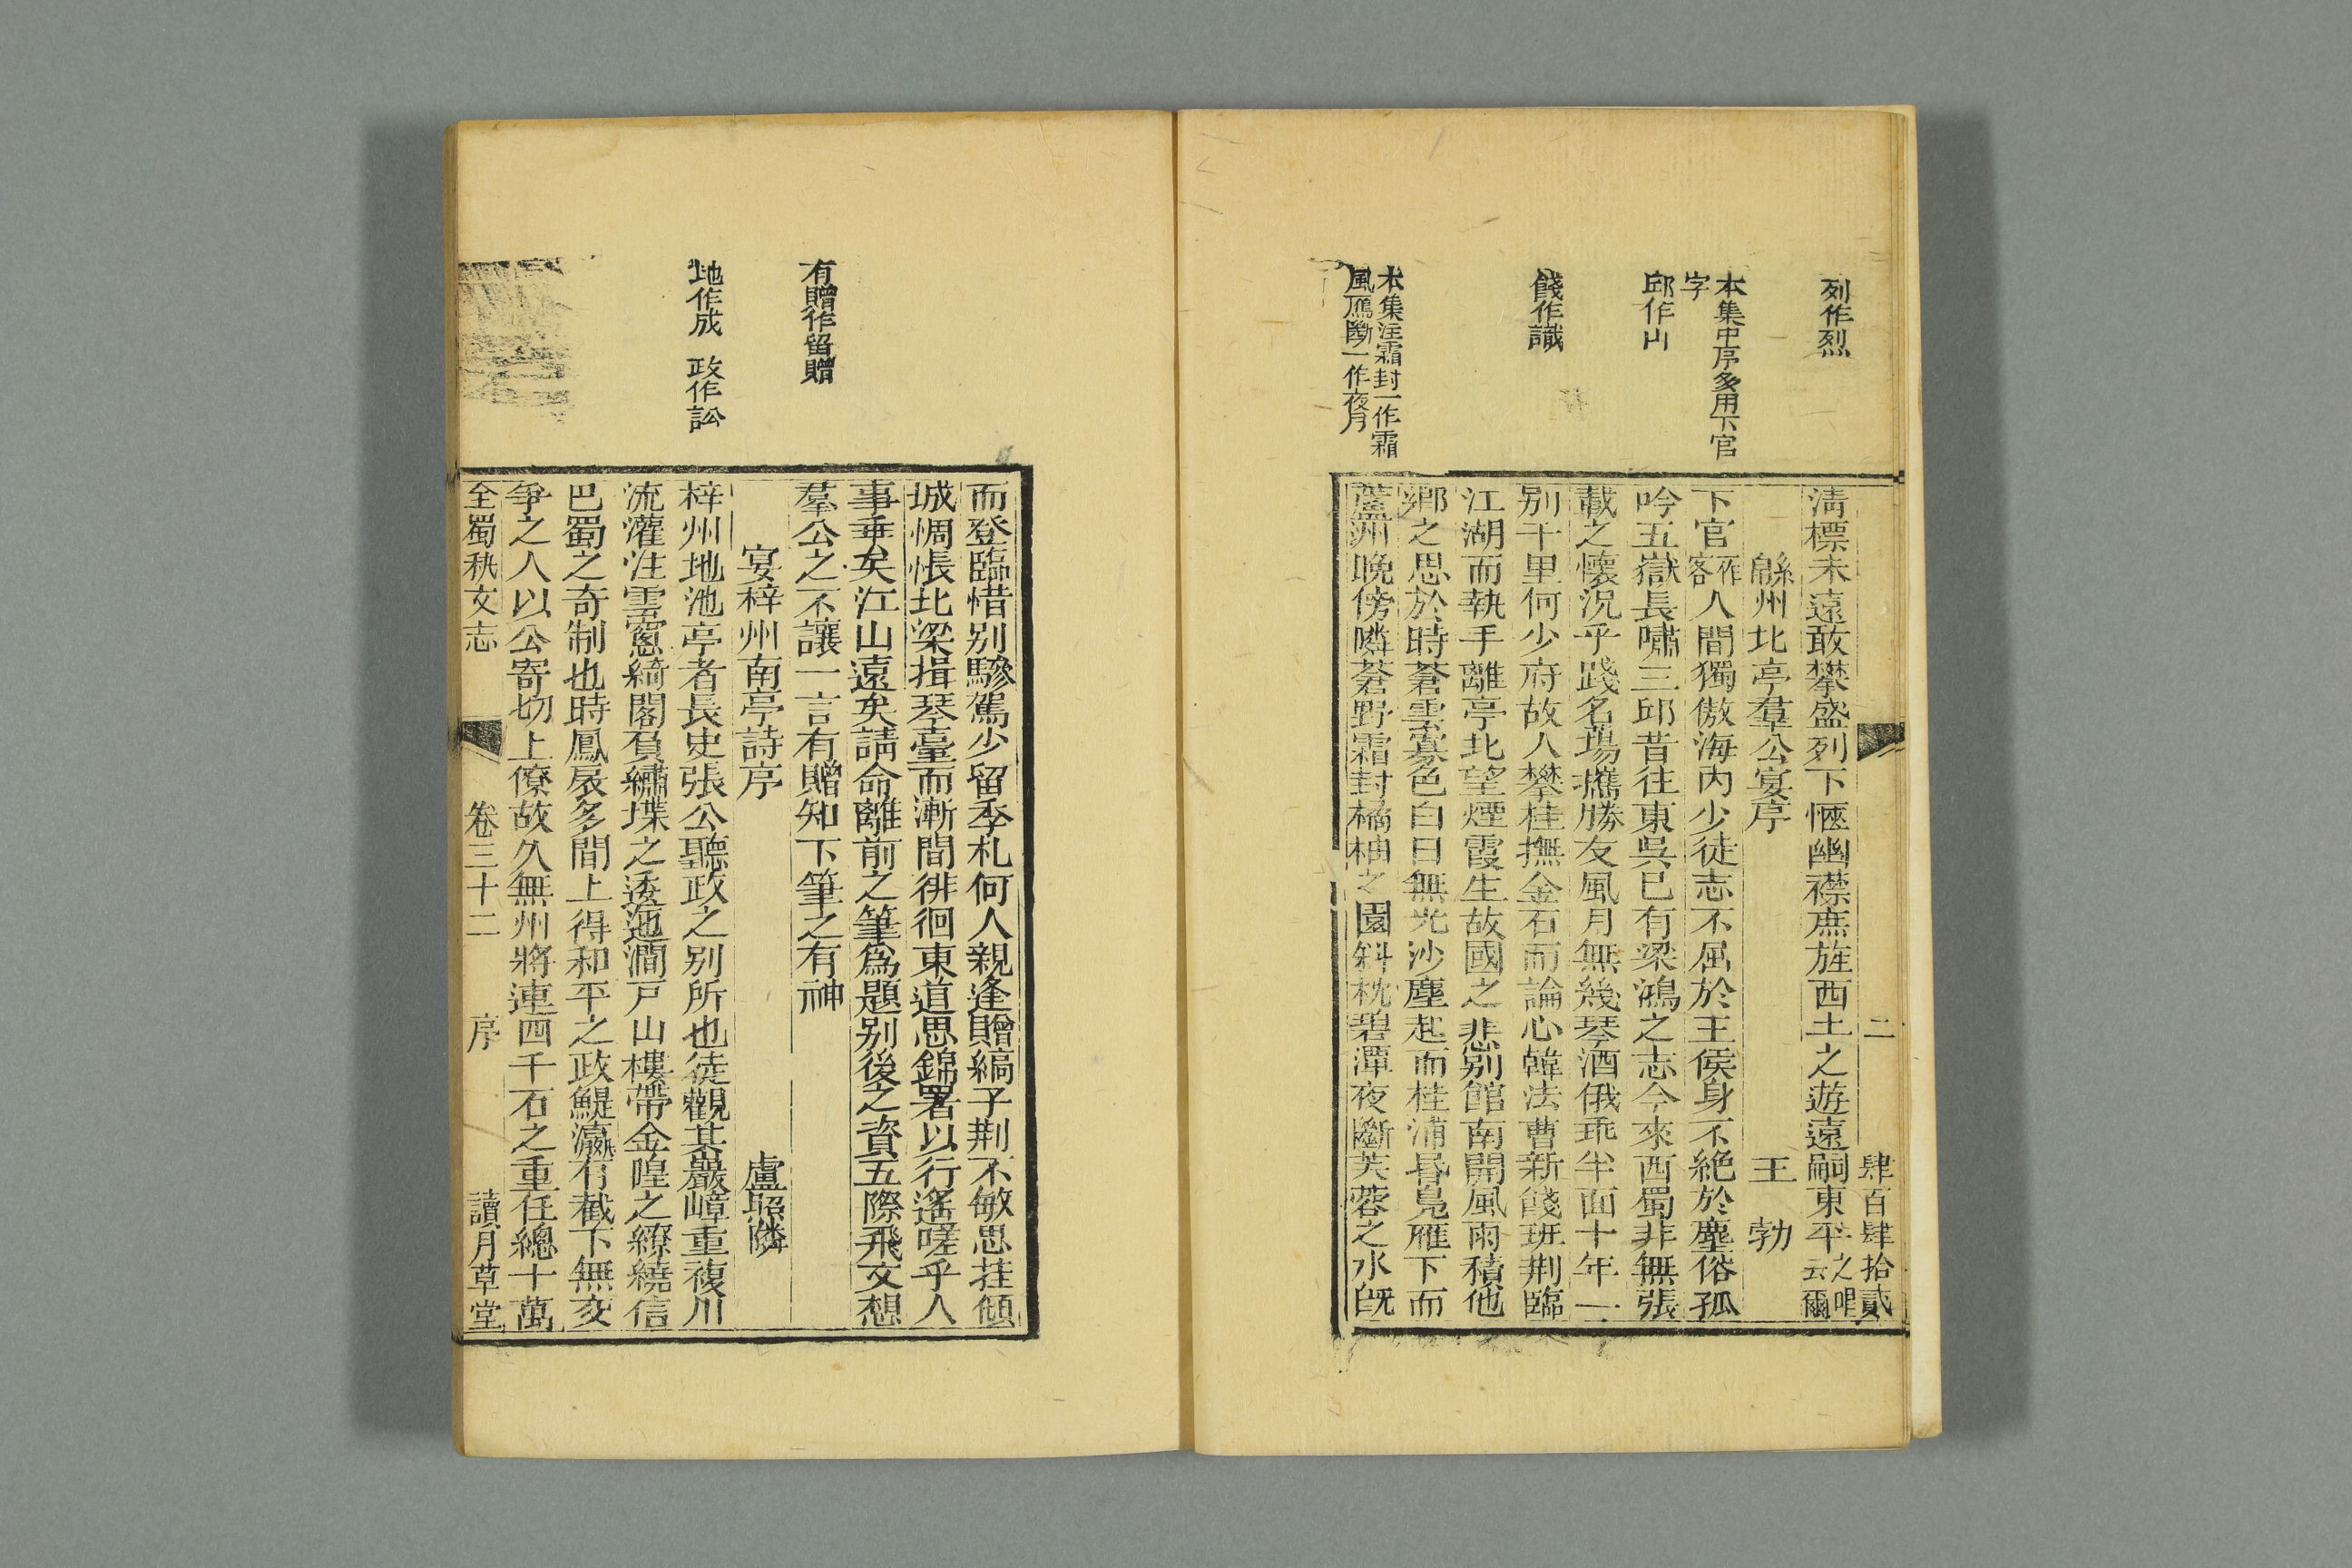 列作烈
本集中序多用下官
字
邱作山
餞作識
本集注霜封一作霜
風雁斷一作夜月
二
肆百肆拾貳
清標未遠敢攀盛列下愜幽襟庶旌西土之遊遠嗣東平之唱云爾
緜州北亭羣公宴序 王勃
下官一作客人間獨傲海内少徒志不屈於王侯身不絶於塵俗孤
吟五嶽長嘯三邱昔往東吳已有梁鴻之志今來西蜀非無張
載之懷況乎踐名場攜勝友風月無幾琴酒俄乖半面十年一
别千里何少府故人攀桂撫金石而論心韓法曹新餞班荆臨
江湖而執手離亭北望煙霞生故國之悲别館南開風雨積他
鄉之思於時蒼雲寡色白日無光沙塵起而桂浦昏鳧雁下而
蘆洲晚傍嶙蒼野霜封橘柚之園斜枕碧潭夜斷芙蓉之水旣
有贈作留贈
地作成 政作訟
而登臨惜别驂駕少留季札何人親逢贈縞子荆不敏思挂傾
城惆悵北梁揖琴臺而漸間徘徊東道思錦署以行遙嗟乎人
事乖矣江山遠矣請命離前之筆爲題别後之資五際飛文想
羣公之不讓一言有贈知下筆之有神
宴梓州南亭詩序 盧照隣
梓州地池亭者長史張公聽政之别所也徒觀其巖嶂重複川
流灌注雲窻綺閣負繡堞之逶迤澗戸山樓帶金隍之繚繞信
巴蜀之奇制也時鳳扆多間上得和平之政鯷瀛有截下無交
爭之人以公寄切上僚故久無州將連四千石之重任總十萬
全蜀秇文志 卷三十二 序 讀月草堂